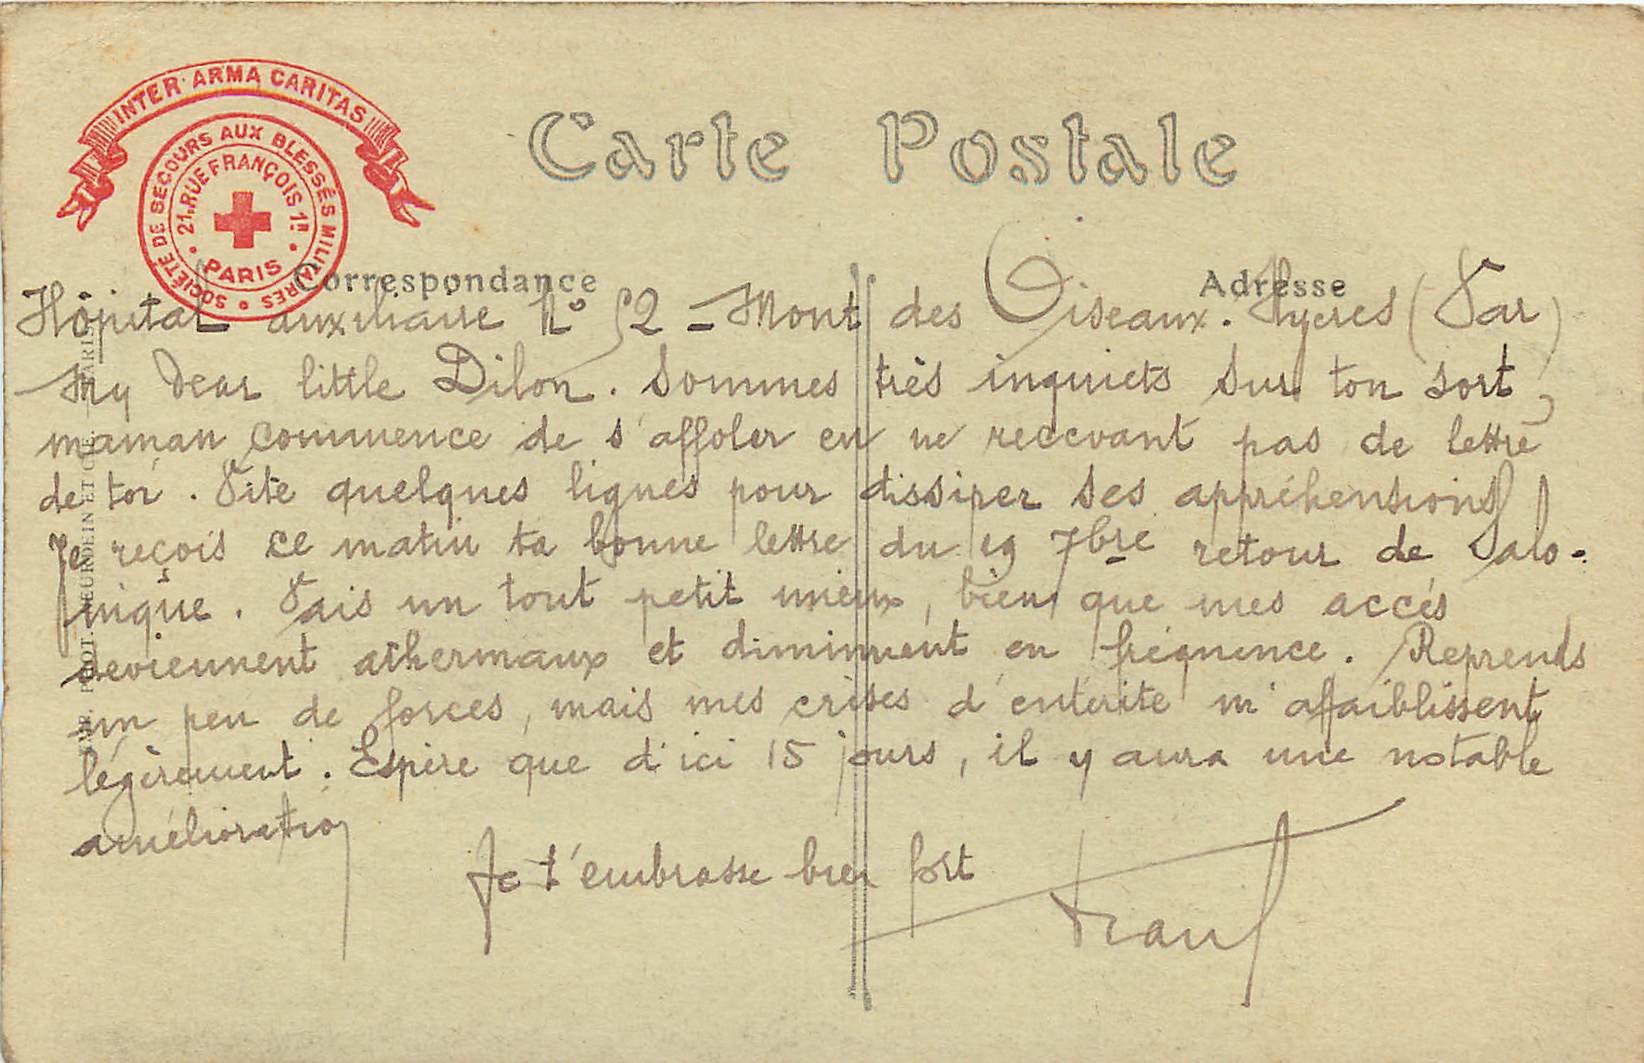 INTER ARMA CARITAS
SOCIÉTÉ DE SECOURS AUX BLESSÉS MILITAIRES
21, RUE FRANÇOIS 1er
PARIS
Carte Postale
Correspondance
Adresse
Hôpital auxiliaire No 52 - Mont des Oiseaux. Hyères (Var)
My dear little Dilon. Sommes très inquiets sur ton sort,
maman commence de s'affoler en ne recevant pas de lettre
de toi. Vite quelques lignes pour dissiper ses appréhensions
Je reçois ce matin ta bonne lettre du 19 7bre retour de Salo-
nique. Vais un tout petit mieux, bien que mes accès
deviennent athermaux et diminuent en fréquence. Reprends
un peu de forces, mais mes crises d'entérite m'affaiblissent
légèrement. Espère que d'ici 15 jours, il y aura une notable
amélioration
Je t'embrasse bien fort